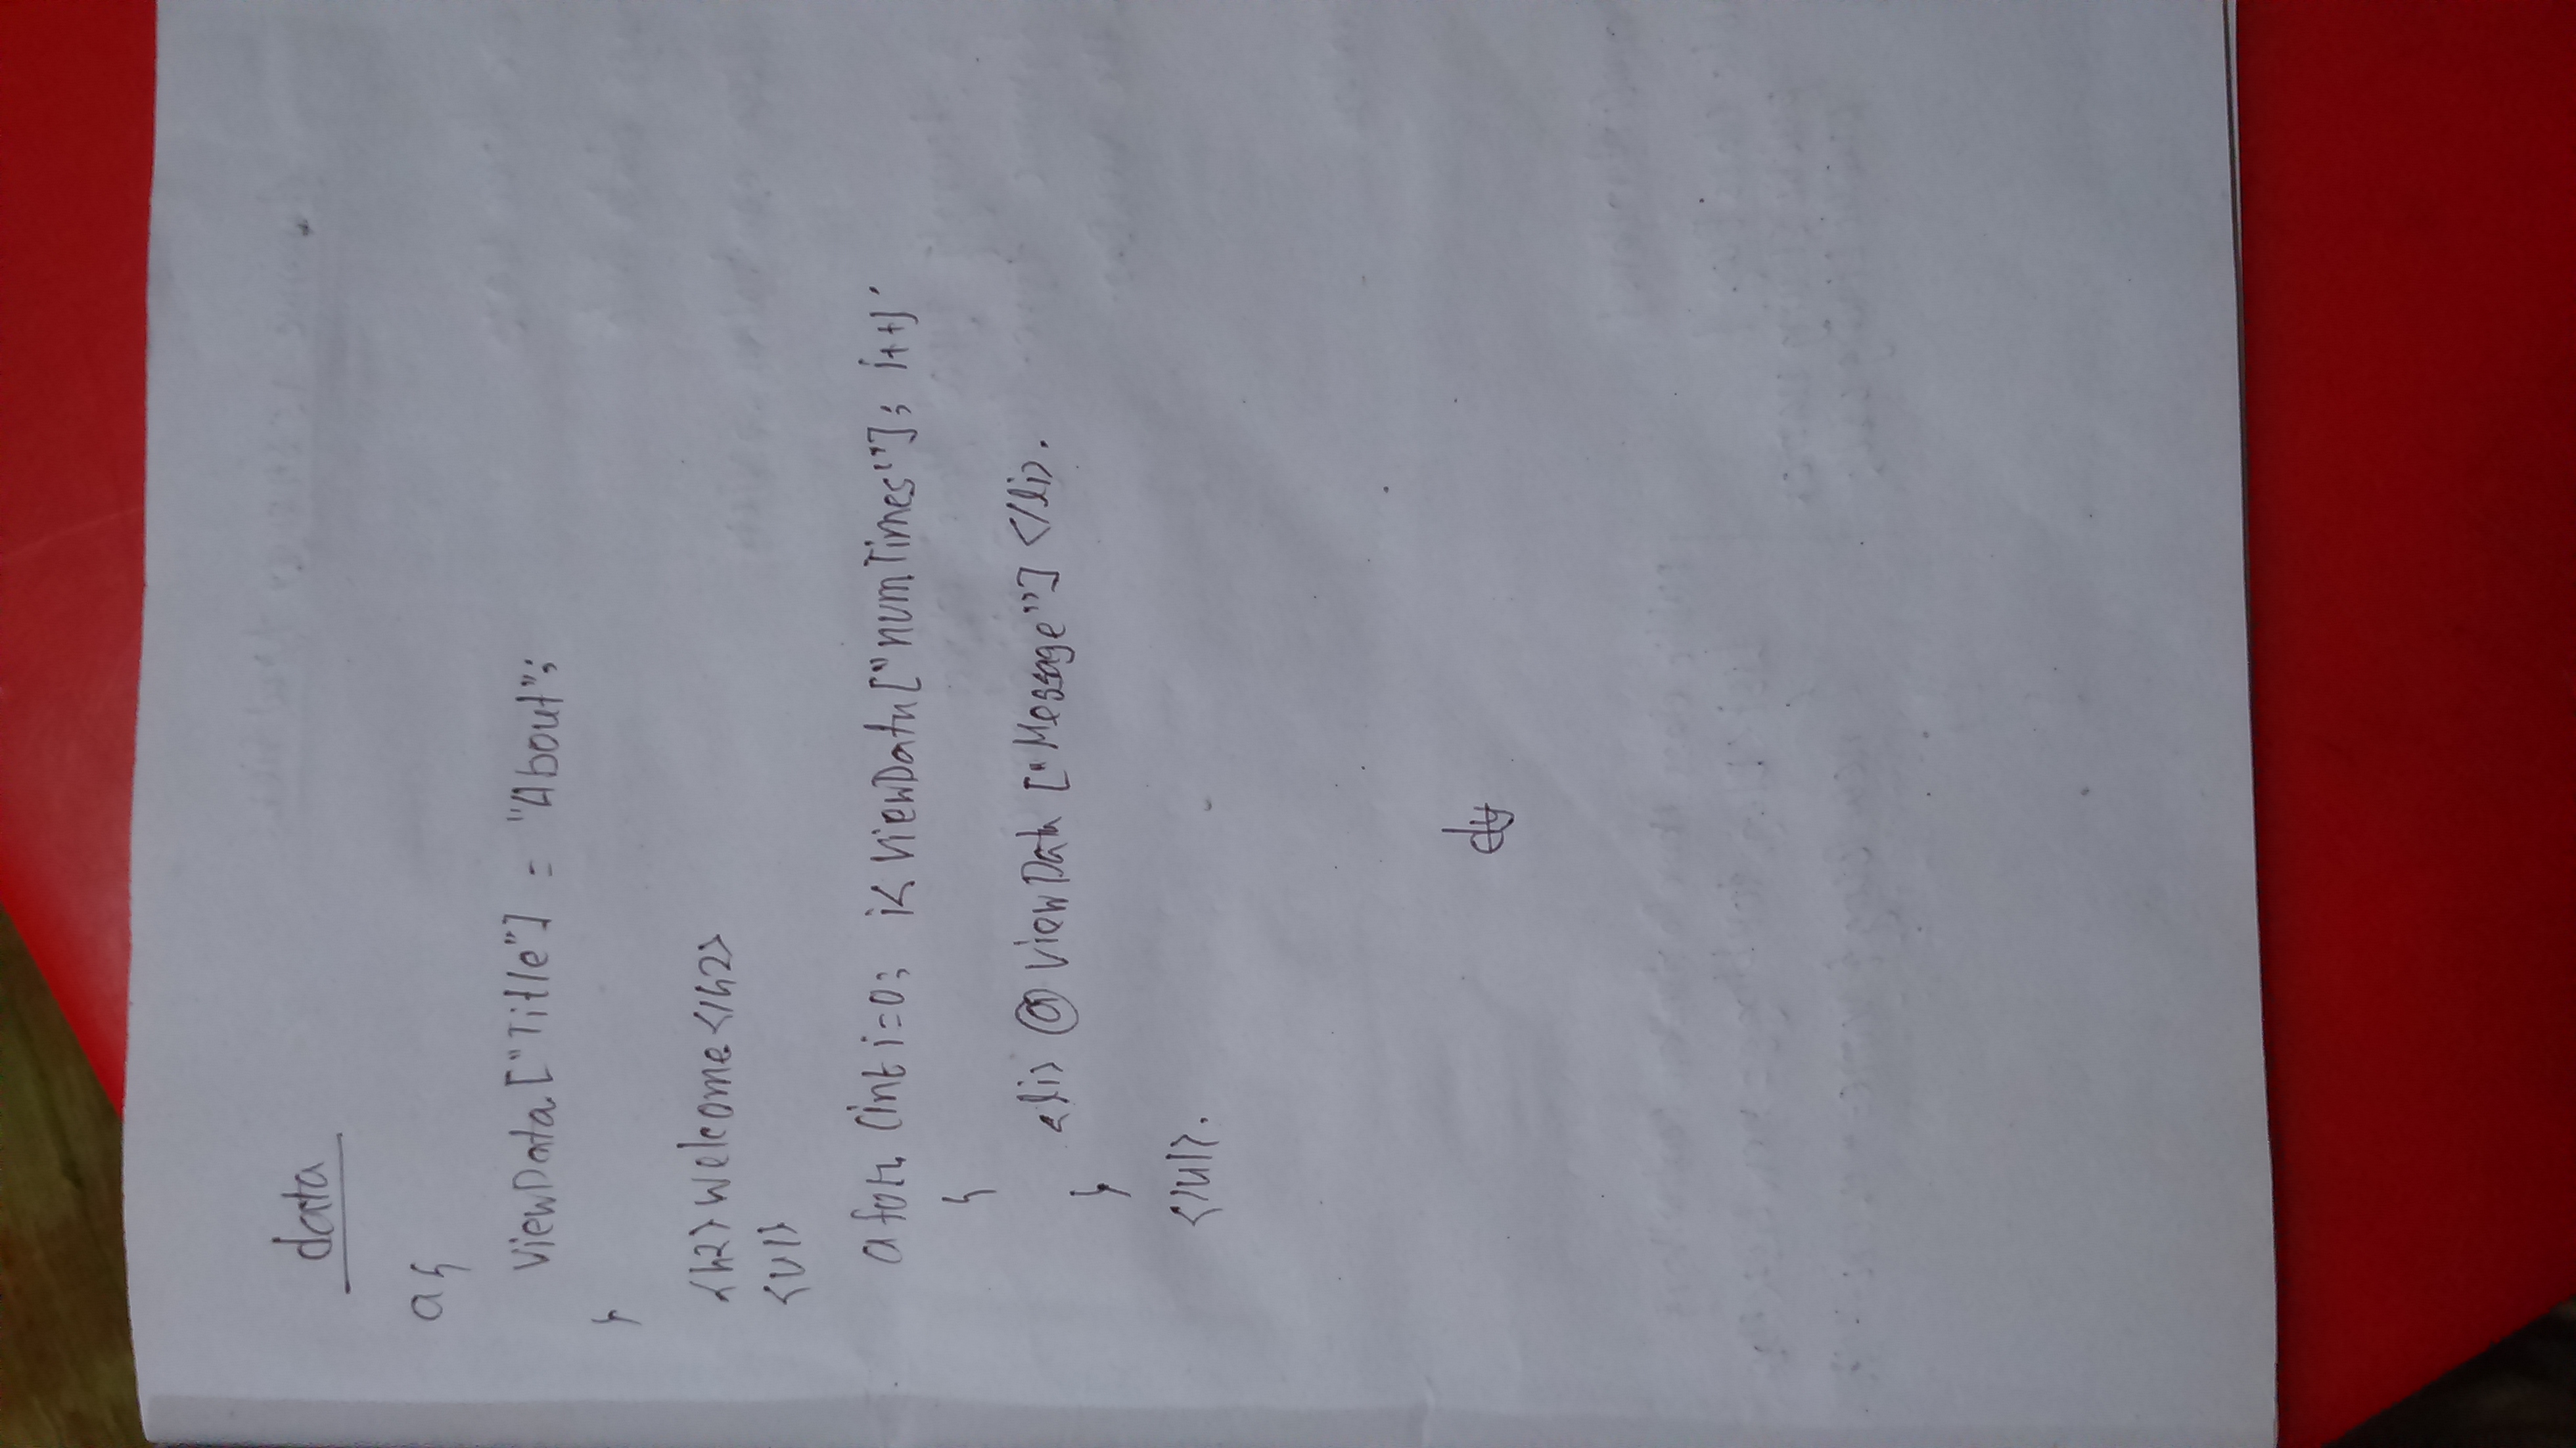 data
a{
ViewData["Title"] = "About";
}
<h2>Welcome</h2>
<ul>
a for (int i=0; i< ViewData["numTimes"]; i++)
{
<li> @ ViewData ["Message"] </li>.
}
</ul>.